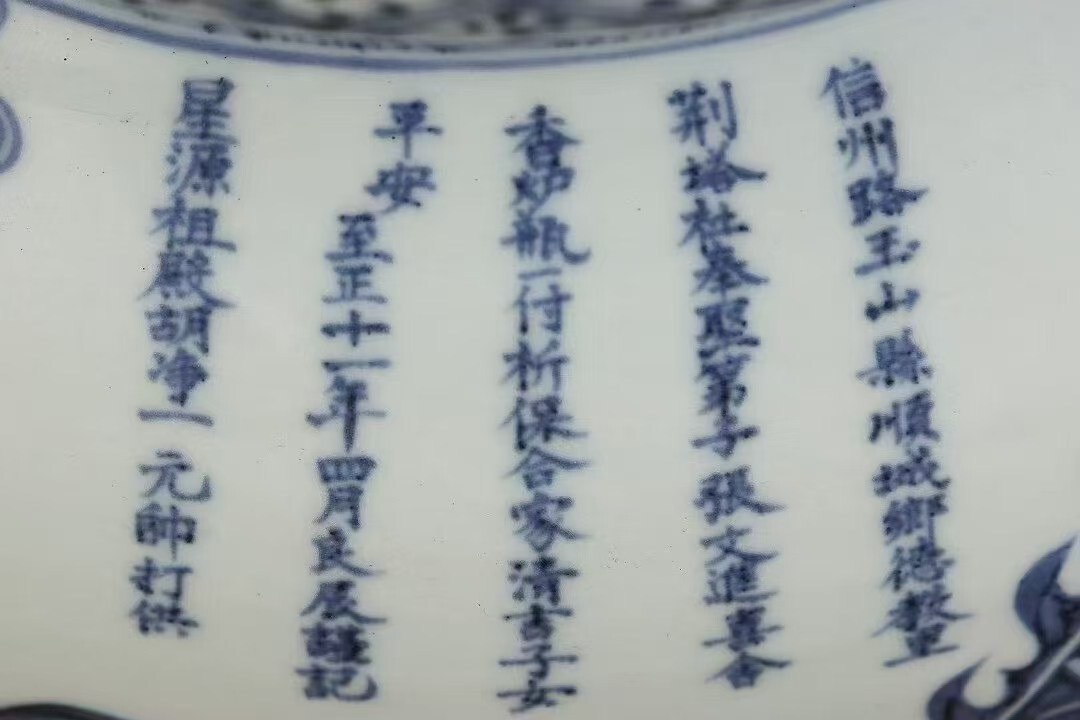 信州路玉山縣順城鄉德教里
荆塔社奉聖弟子張文進喜舍
香炉瓶一付祈保合家清吉子女
平安
至正十一年四月良辰謹記
星源祖殿胡净一元帥打供